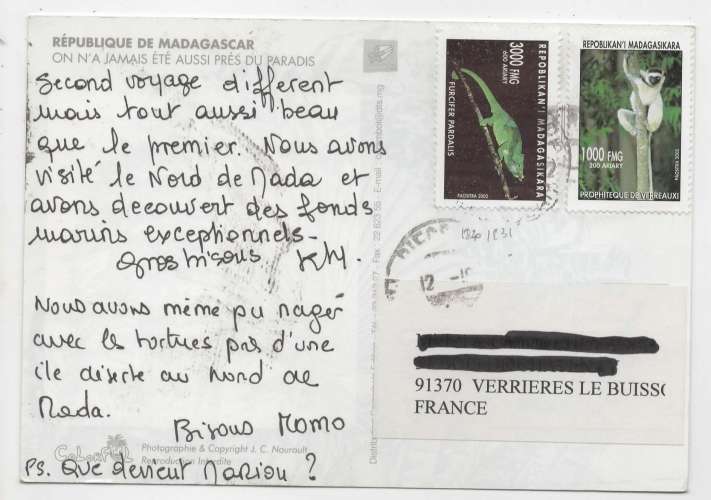 RÉPUBLIQUE DE MADAGASCAR
ON N'A JAMAIS ÉTÉ AUSSI PRÈS DU PARADIS
Second voyage différent
mais tout aussi beau
que le premier. Nous avons
visité le Nord de Mada et
avons decouvert des fonds
marins exceptionnels.
Gros bisous KM.
Nous avons même pu nager
avec les tortues près d'une
ile déserte au Nord de
Mada.
Bisous Momo
COLOURFUL
Photographie & Copyright J. C. Nourault
Reproduction Interdite
PS. Que devient Marion ?
3000 FMG
600 ARIARY
FURCIFER PARDALIS
REPOBLIKAN'I MADAGASIKARA
REPOBLIKAN'I MADAGASIKARA
1000 FMG
200 ARIARY
PROPHITEQUE DE VERREAUXI
12
91370 VERRIERES LE BUISSO
FRANCE